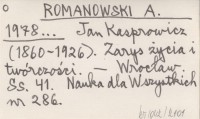 ROMANOWSKI A.
1978... Jan Kasprowicz
(1860-1926). Zarys życia i
twórczości. — Wrocław
Ss. 41. Nauka dla Wszystkich
nr 286.